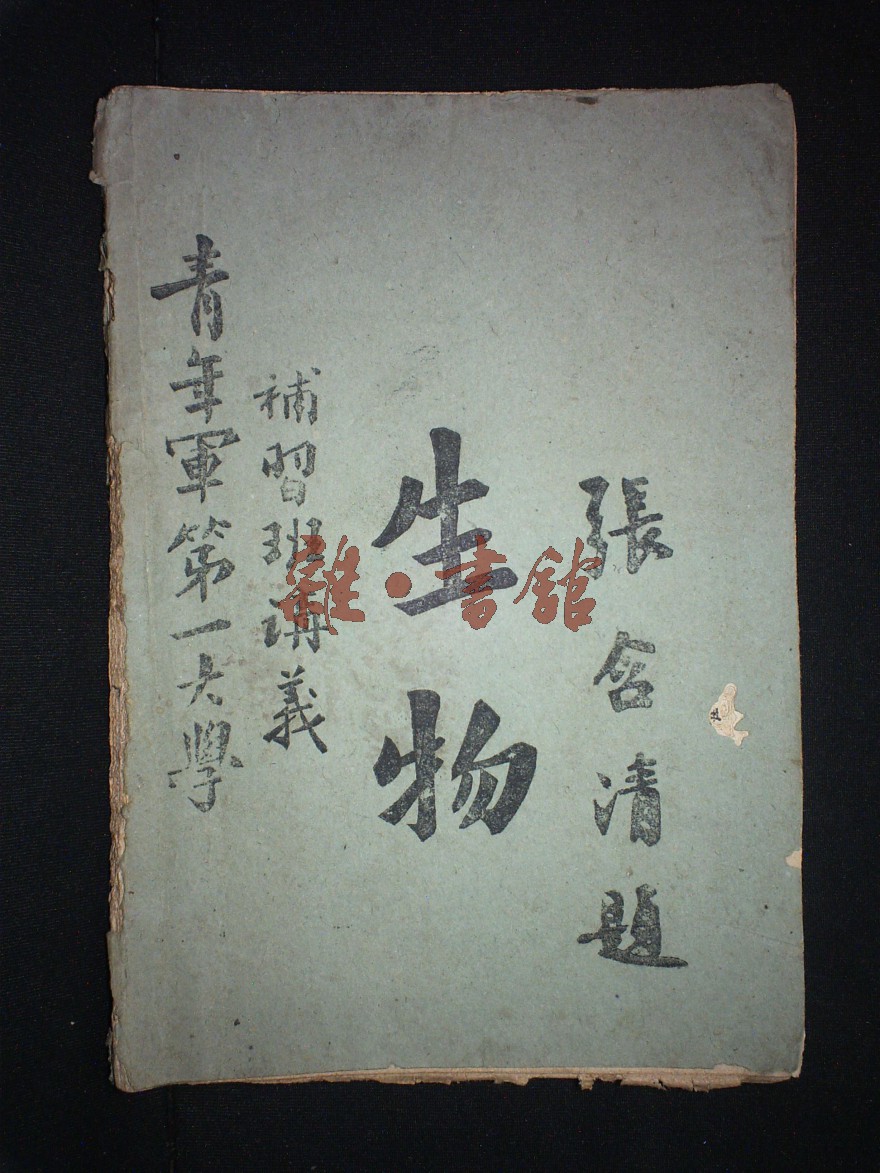 青年軍第一大學
補習班講義
生物
張含清題
雜·書館